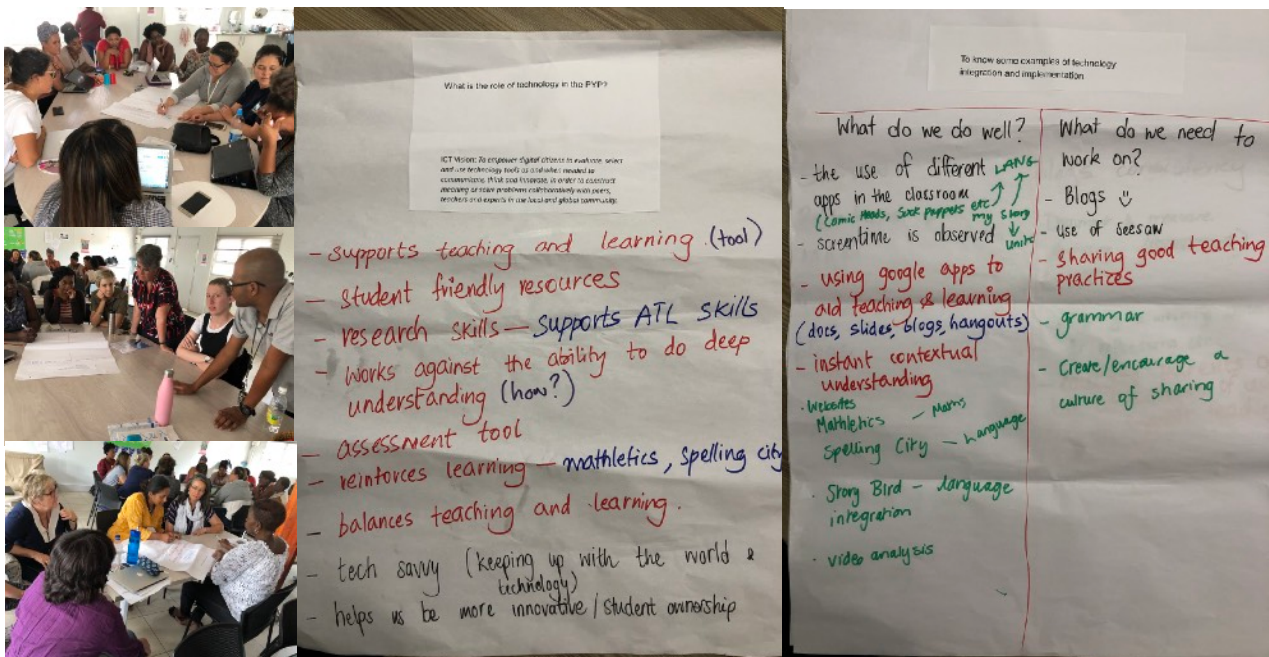 What is the role of technology in the PYP?
ICT Vision: To empower digital citizens to evaluate, select
and use technology tools as and when needed to
communicate, think and innovate, in order to construct
meaning or solve problems collaboratively with peers,
teachers and experts in the local and global community.
- supports teaching and learning (tool)
- student friendly resources
- research skills — supports ATL skills
- works against the ability to do deep
understanding (how?)
- assessment tool
- reinforces learning — mathletics, spelling city
- balances teaching and learning.
- tech savvy (keeping up with the world &
technology)
- helps us be more innovative / student ownership
To know some examples of technology
integration and implementation
What do we do well?
- the use of different LANG
apps in the classroom
(Comic Heads, Sock puppets etc my story
- screentime is observed units
- using google apps to
aid teaching & learning
(docs, slides, blogs, hangouts)
- instant contextual
understanding
· Websites
Mathletics — Maths
Spelling City — Language
· Story Bird — language
integration
· video analysis
What do we need to
work on?
- Blogs
- use of seesaw
- sharing good teaching
practices
- grammar
- Create/encourage a
culture of sharing